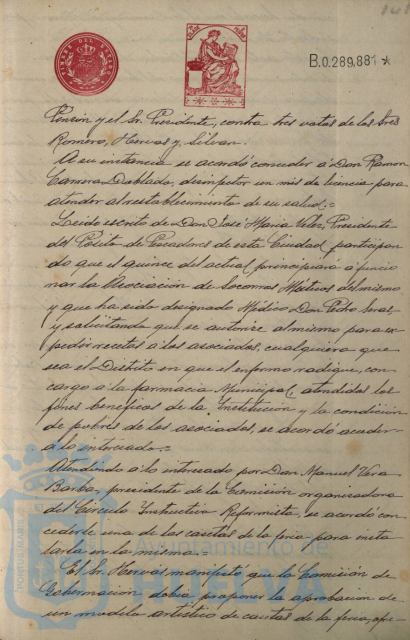 TIMBRE DEL ESTADO
B.0.289,881 *
Pinzón y el Sr. Presidente, contra tres votos de los Sres
Romero, Hervas y Silvan.
A su instancia se acordó conceder á Don Ramon
Camiera Doblado, desinfector un mes de licencia para
atender al restablecimiento de su salud.=
Leido escrito de Don José Maria Velez, Presidente
del Posito de Pescadores de esta Ciudad participan
do que el quince del actual principiará á funcio
nar la Asociación de Socorros Mutuos del mismo
y que ha sido designado Médico Don Pedro Seras,
y solicitando que se autorice al mismo para ex-
pedir recetas á los asociados, cualquiera que
sea el Distrito en que el enfermo radique, con
cargo a la farmacia Municipal, atendidos los
fines beneficos de la Institución y la condición
de pobres de los asociados, se acordó acceder
a lo interesado.=
Atendiendo a lo interesado por Don Manuel Vera
Barba, presidente de la Comisión organizadora
del Circulo Instructivo Reformista, se acordó con
cederle una de las casetas de la feria para insta
larla en la misma.=
El Sr. Hervas manifestó que la Comisión de
Gobernacion debia proponer la aprobacion de
un modelo artistico de casetas de la feria, ope-
Ayuntamiento de
HUELVA